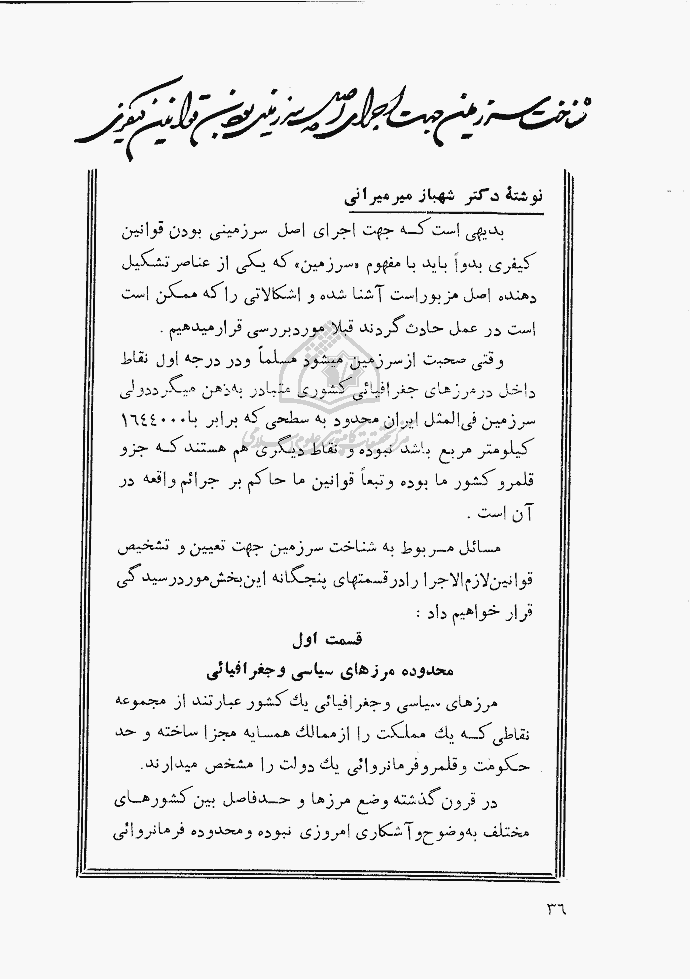 شناخت سرزمین جهت اجرای اصل سرزمینی بودن قوانین کیفری
نوشتهٔ دکتر شهباز میرمیرانی
بدیهی است که جهت اجرای اصل سرزمینی بودن قوانین
کیفری بدواً باید با مفهوم «سرزمین» که یکی از عناصر تشکیل
دهنده اصل مزبور است آشنا شده و اشکالاتی را که ممکن است
است در عمل حادث گردند قبلا مورد بررسی قرار میدهیم .
وقتی صحبت از سرزمین میشود مسلماً و در درجه اول نقاط
داخل در مرزهای جغرافیائی کشوری متبادر به ذهن میگردد ولی
سرزمین فی‌المثل ایران محدود به سطحی که برابر با ۱۶۴۴۰۰۰
کیلومتر مربع باشد نبوده و نقاط دیگری هم هستند که جزو
قلمرو کشور ما بوده و تبعاً قوانین ما حاکم بر جرائم واقعه در
آن است .
مسائل مربوط به شناخت سرزمین جهت تعیین و تشخیص
قوانین لازم‌الاجرا را در قسمتهای پنجگانه این بخش مورد رسیدگی
قرار خواهیم داد :
قسمت اول
محدوده مرزهای سیاسی و جغرافیائی
مرزهای سیاسی و جغرافیائی یك کشور عبارتند از مجموعه
نقاطی که یك مملکت را از ممالك همسایه مجزا ساخته و حد
حکومت و قلمرو فرمانروائی یك دولت را مشخص میدارند.
در قرون گذشته وضع مرزها و حد فاصل بین کشورهای
مختلف به وضوح و آشکاری امروزی نبوده و محدوده فرمانروائی
۳۶